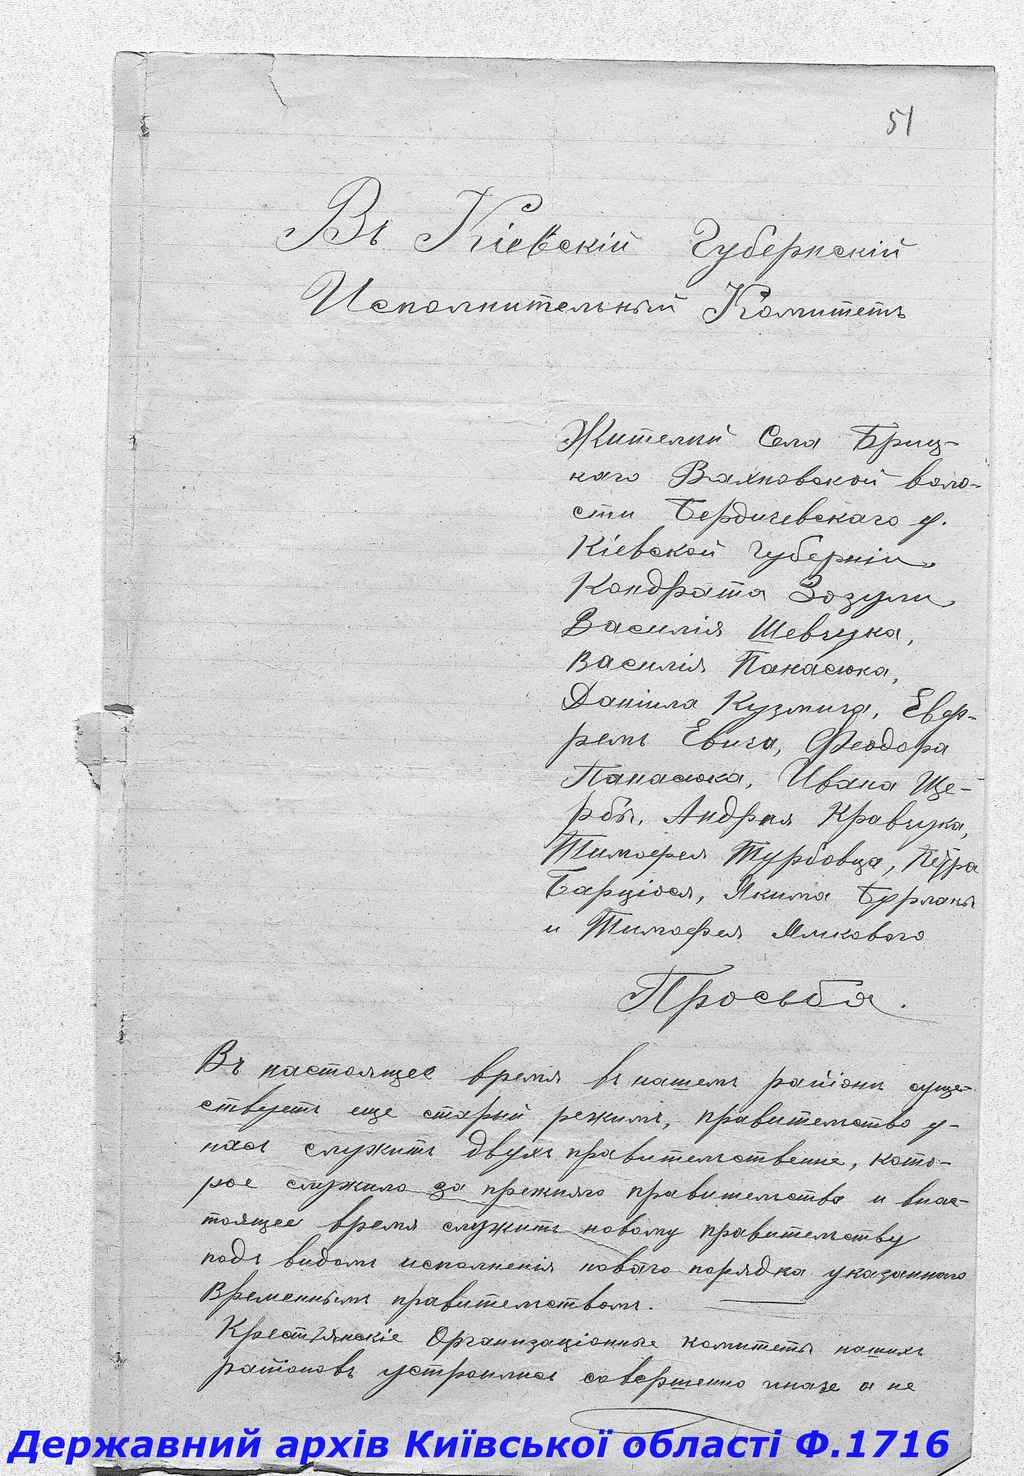 51
Въ Кіевскій Губернскій
Исполнительный Комитетъ
Жителий Села Бриц-
каго Вахновской воло-
сти Бердичевскаго у.
Кіевской Губерніи
Кондрата Зозули
Василія Шевчука,
Василія Панасюка,
Даніила Кузмича, Евф-
ремъ Евича, Феодора
Панасюка, Ивана Ще-
рбы, Андрея Кравчука,
Тимофея Турбовца, Петра
Барціося, Якима Бурлакы
и Тимофея Ямкового
Просьба.
Въ настоящее время въ нашемъ районъ суще-
ствуетъ еще старый режимъ, правительство у-
насъ служитъ двухъ правительствене, кото-
рое служило за прежняго правительства и внас-
тоящее время служитъ новому правительству
подъ видомъ исполненія новаго порядка указаннаго
Временнымъ правительствомъ.
Крестьянскіе Организаціонные комитеты нашихъ
раіоновъ устроились совершенно иначе а не
Державний архів Київської області Ф.1716